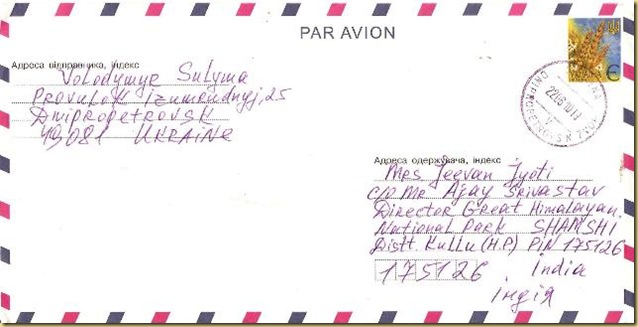 PAR AVION
Адреса відправника, індекс
Volodymyr Sulyma
Provulok Izumrudnyj, 25
Dnipropetrovsk
49081 UKRAINE
Є
DNIPROPETROVSK
22 06 10 17
Адреса одержувача, індекс
Mrs Jeevan Jyoti
c/o Mr Ajay Srivastav
Director Great Himalayan
National Park SHAMSHI
Distt. Kullu (H.P.) PIN 175126
175126 India
Індія